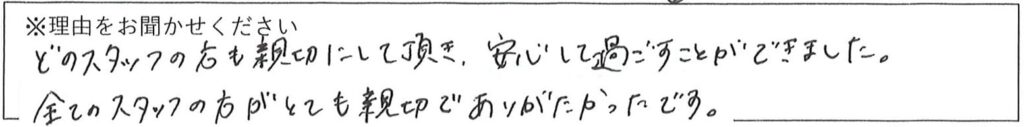 ※理由をお聞かせください
どのスタッフの方も親切にして頂き、安心して過ごすことができました。
全てのスタッフの方がとても親切でありがたかったです。